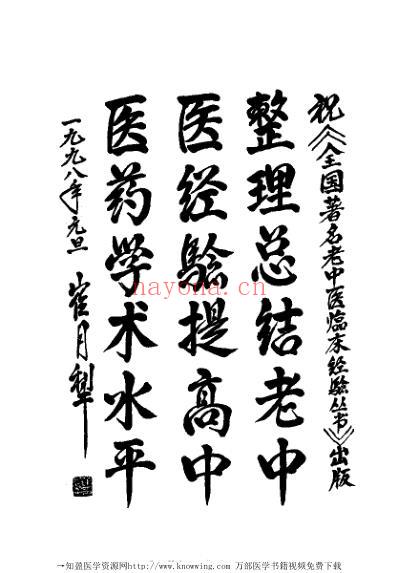 祝《全国著名老中医临床经验丛书》出版
整理总结老中
医经验提高中
医药学术水平
一九九八年元旦
崔月犁
nayona.cn
→知盈医学资源网http://www.knowing.com 万部医学书籍视频免费下载